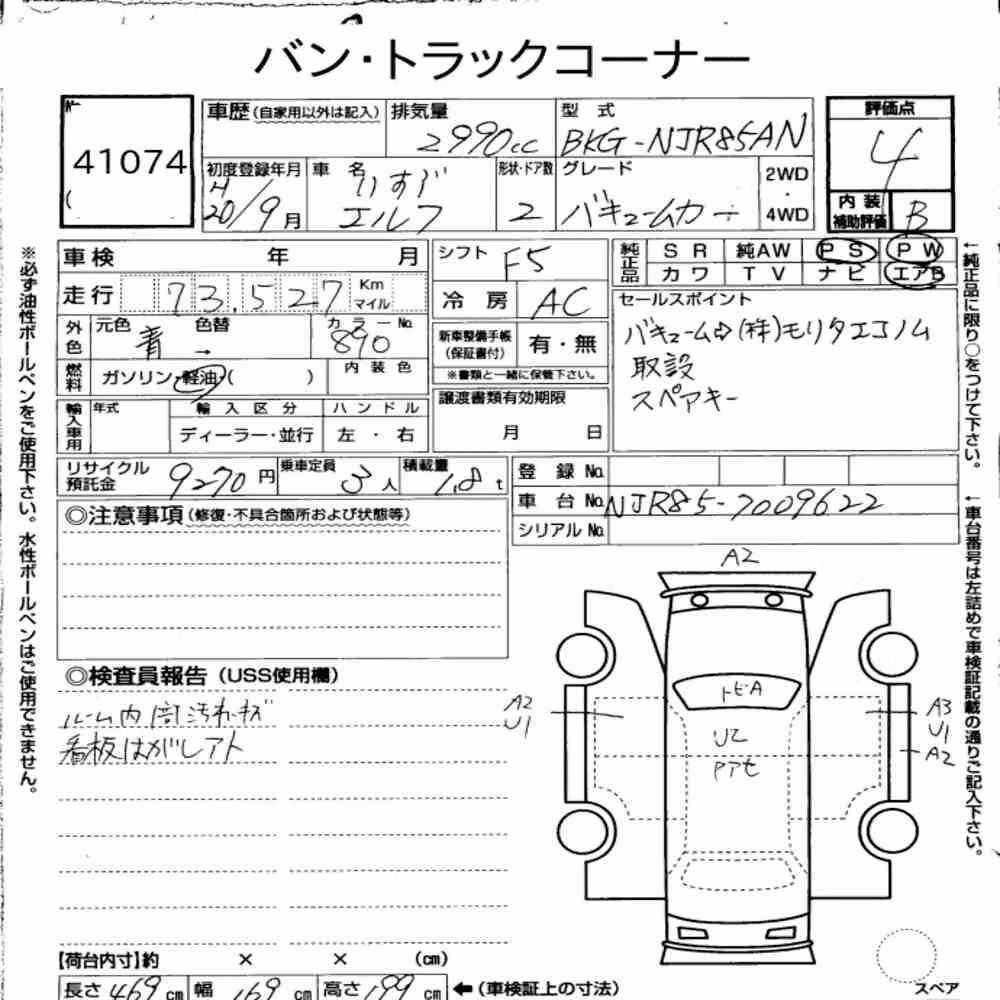 バン・トラックコーナー
41074
(
車歴(自家用以外は記入)
排気量
2990cc
型式
BKG-NJR85AN
評価点
4
初度登録年月
H
20/9月
車名
いすゞ
エルフ
形状・ドア数
2
グレード
バキュームカー
2WD
・
4WD
内装
補助評価
B
車検 年 月
シフト
F5
純正品
SR 純AW PS PW
カワ TV ナビ エアB
走行 73.527 Km マイル
冷房 AC
セールスポイント
バキューム⇨(株)モリタエコノム
取設
スペアキー
外色
元色 色替
青 →
カラーNo.
890
新車整備手帳
(保証書付)
有・無
※書類と一緒に保管下さい。
燃料
ガソリン・軽油・( )
内装色
譲渡書類有効期限
月 日
輸入車用
年式
輸入区分
ディーラー・並行
ハンドル
左・右
リサイクル
預託金
9270円
乗車定員
3人
積載量
1.8t
登録No.
車台No. NJR85-7009622
シリアルNo.
◎注意事項(修復・不具合箇所および状態等)
◎検査員報告(USS使用欄)
ルーム内
汚れ・キズ
看板はがしアト
A2
A2
U1
トビA
U2
A3
U1
A2
【荷台内寸】約 × × (cm)
長さ 469cm 幅 169cm 高さ 199cm ←(車検証上の寸法)
スペア
※必ず油性ボールペンをご使用下さい。水性ボールペンはご使用できません。
←純正品に限り○をつけて下さい。
←車台番号は左詰めで車検証記載の通りご記入下さい。